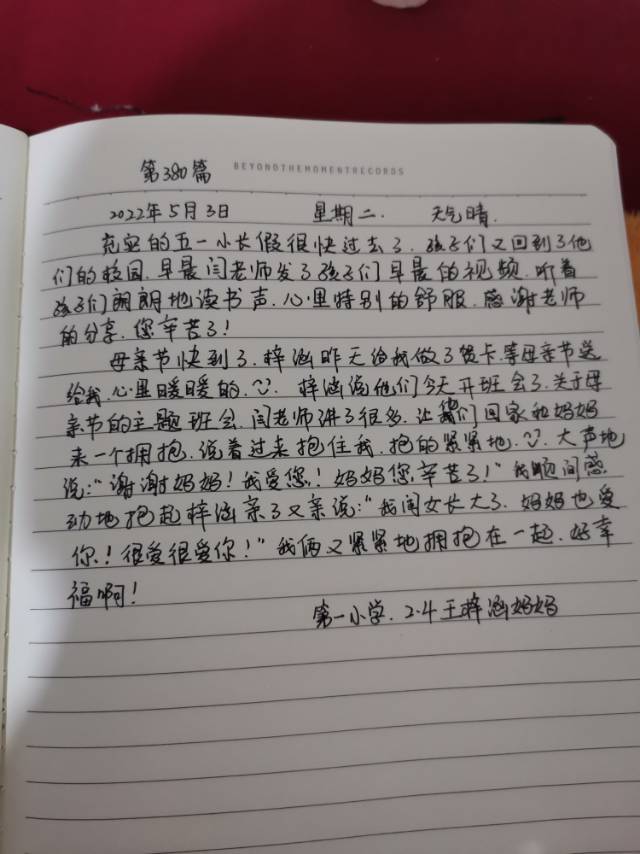 第380篇 BEYONDTHEMOMENTRECORDS
2022年5月3日 星期二. 天气晴.
充实的五一小长假很快过去了. 孩子们又回到了他
们的校园. 早晨闫老师发了孩子们早晨的视频. 听着
孩子们朗朗地读书声. 心里特别的舒服. 感谢老师
的分享. 您辛苦了!
母亲节快到了. 梓涵昨天给我做了贺卡. 等母亲节送
给我. 心里暖暖的. 梓涵说他们今天开班会了. 关于母
亲节的主题班会. 闫老师讲了很多. 让我们回家和妈妈
来一个拥抱. 说着过来抱住我. 抱的紧紧地. 大声地
说:“谢谢妈妈! 我爱您! 妈妈您辛苦了!” 我瞬间感
动地抱起梓涵亲了又亲说:“我闺女长大了. 妈妈也爱
你! 很爱很爱你!” 我俩又紧紧地拥抱在一起. 好幸
福啊!
第一小学. 2.4 王梓涵妈妈